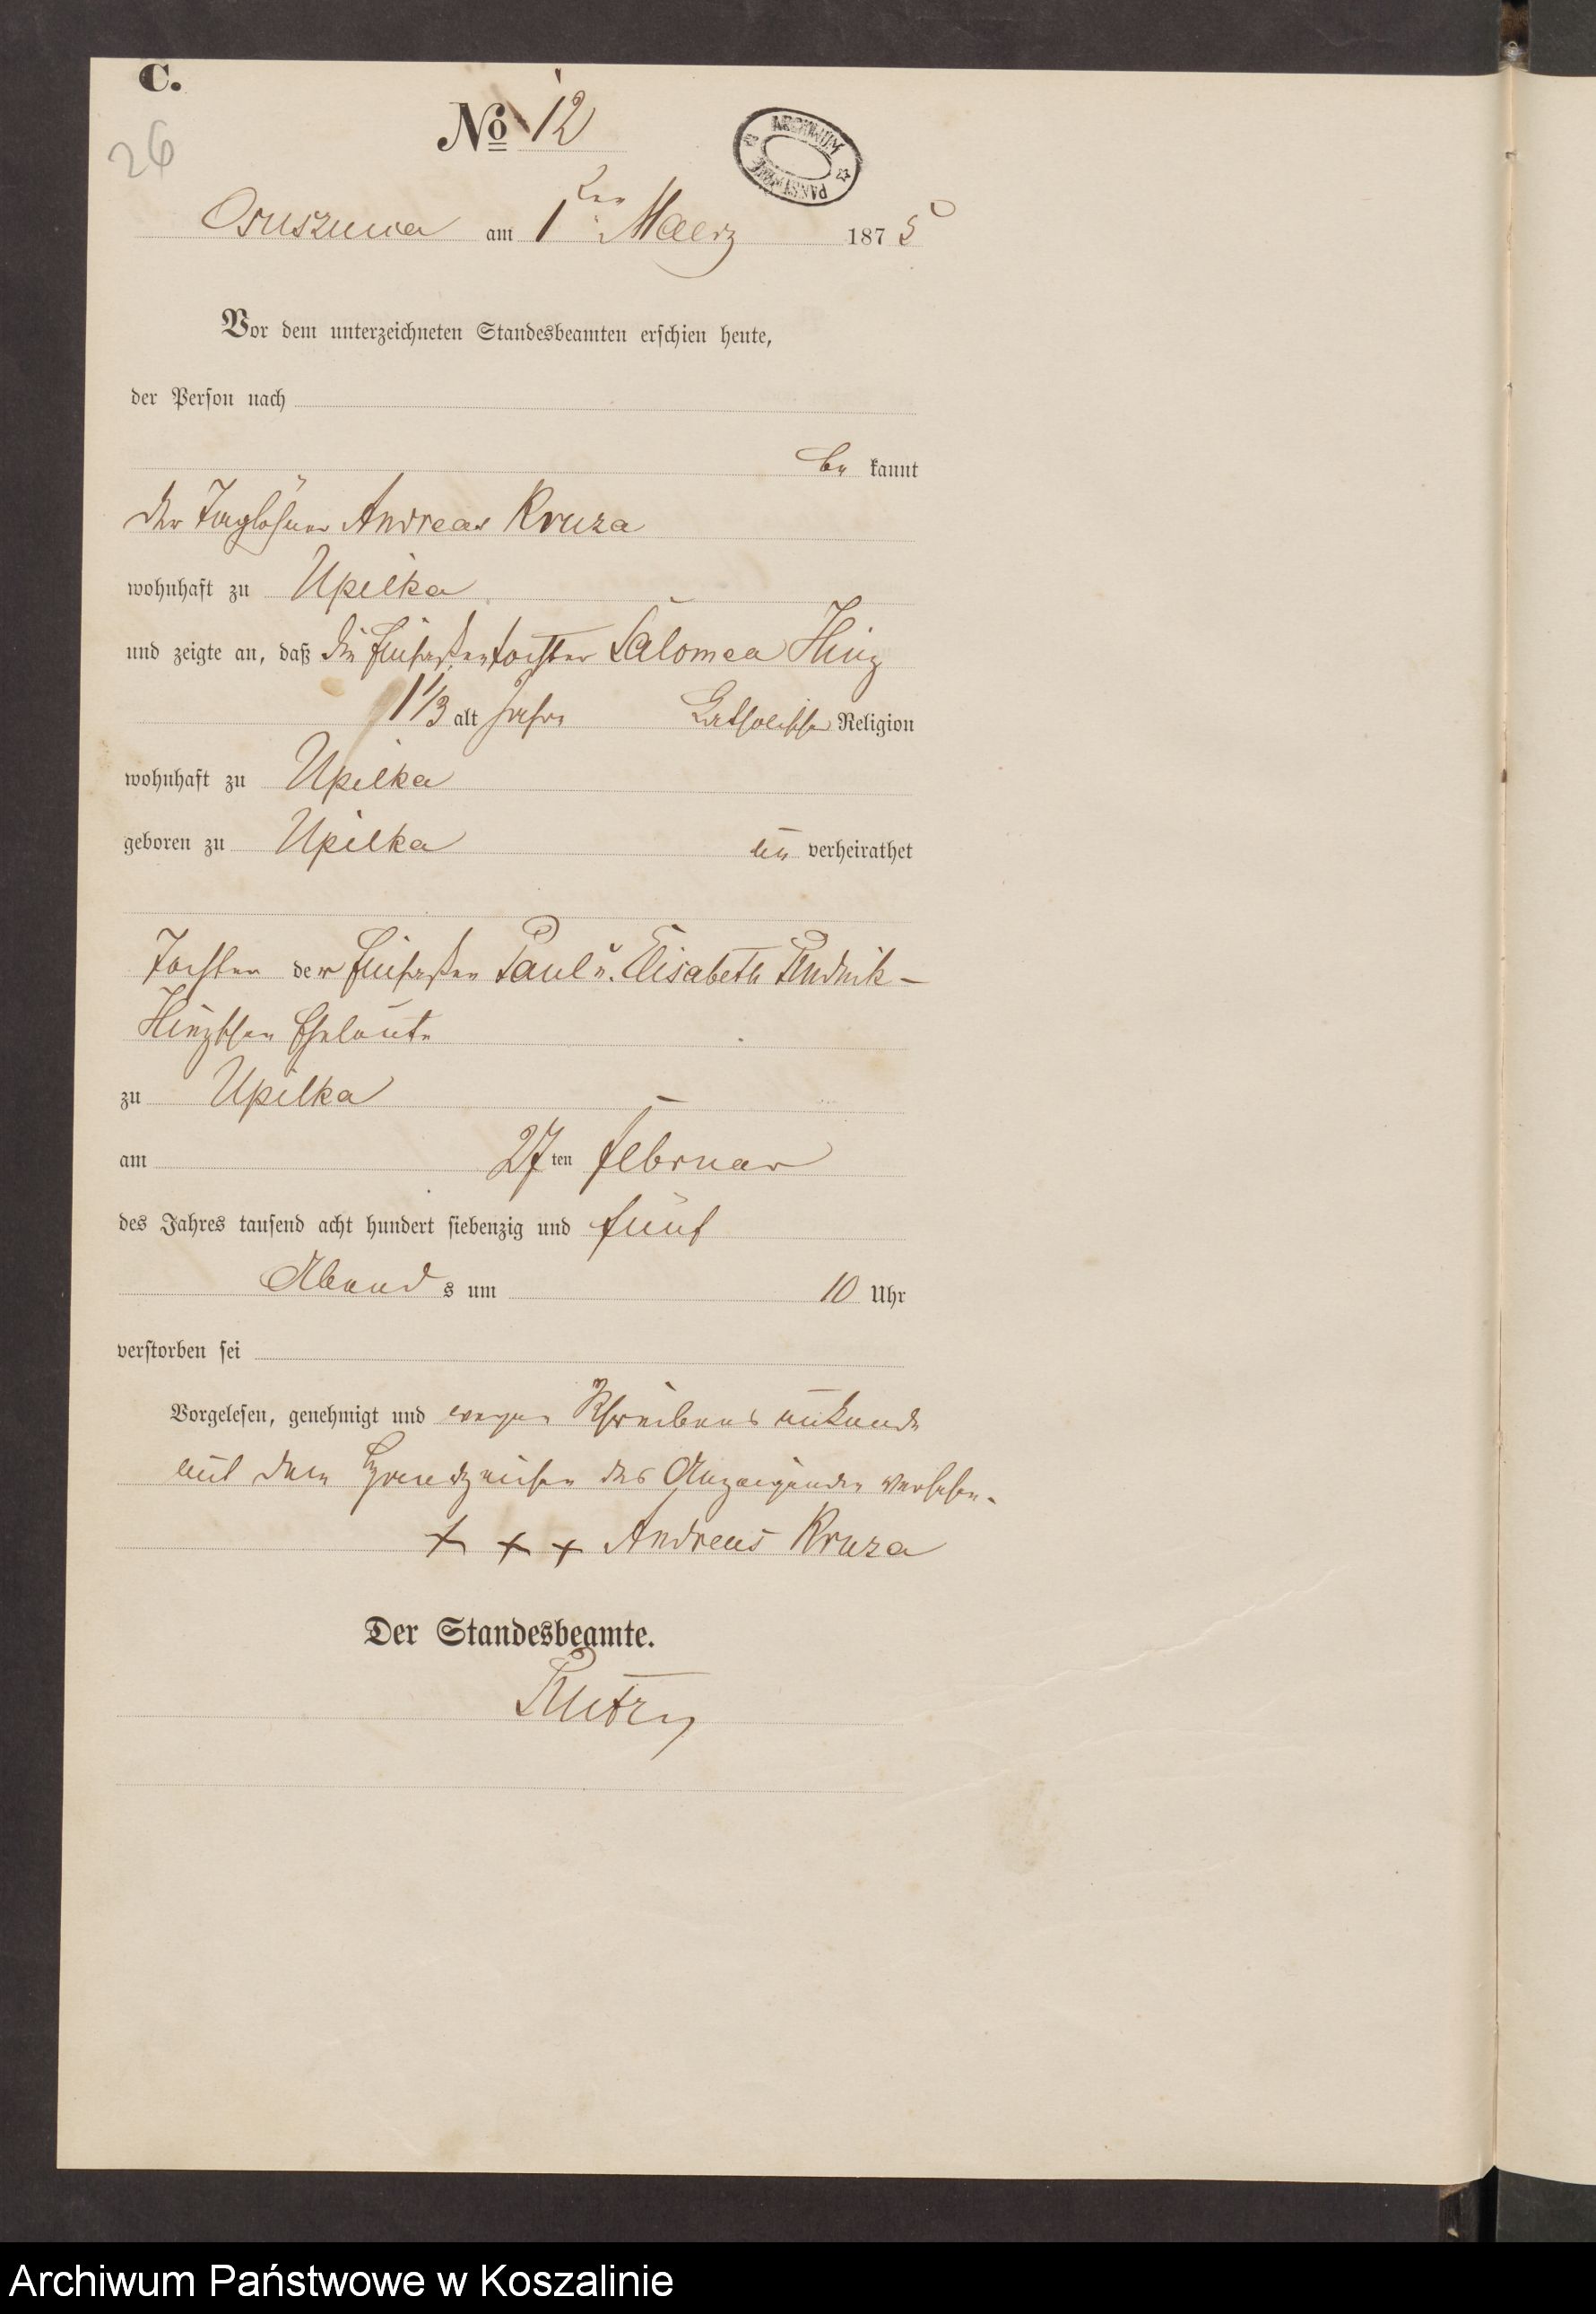 C.
26
No 12
ARCHIWUM PAŃSTWOWE
Osusznica am 1ten Maerz 1875
Vor dem unterzeichneten Standesbeamten erschien heute,
der Person nach
be kannt
der Taglöhner Andreas Kruza
wohnhaft zu Upilka
und zeigte an, daß die Einsaßentochter Salomea Hinz
1 1/3 alt Jahre katholischer Religion
wohnhaft zu Upilka
geboren zu Upilka un verheirathet
Tochter der Einsaßen Paul u. Elisabeth Rudnik-
Hinzschen Eheleute
zu Upilka
am 27ten Februar
des Jahres tausend acht hundert siebenzig und fünf
Abend s um 10 Uhr
verstorben sei
Vorgelesen, genehmigt und wegen Schreibens unkunde
mit dem Handzeichen des Anzeigenden versehen.
+ + + Andreas Kruza
Der Standesbeamte.
Archiwum Państwowe w Koszalinie